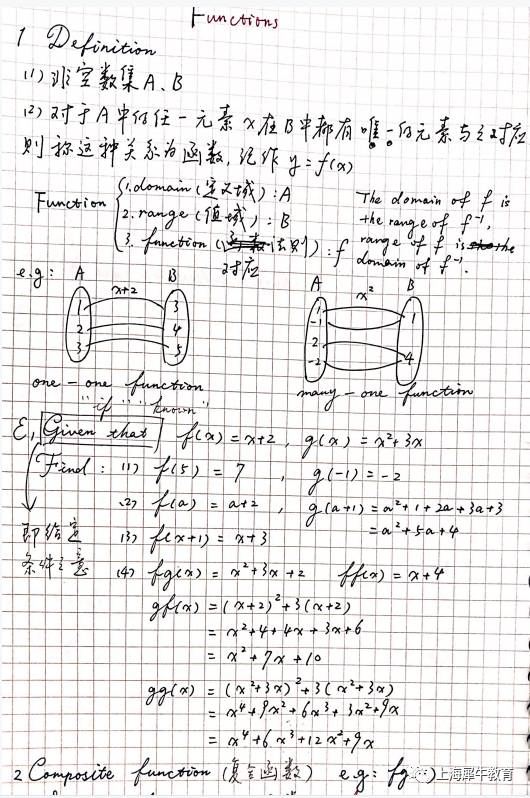 Functions
1 Definition
(1) 非空数集 A、B
(2) 对于A中的任一元素 x在B中都有唯一的元素与之对应
则称这种关系为函数, 记作 y=f(x)
Function
1. domain (定义域) : A
2. range (值域) : B
3. function (法则) : f
对应
The domain of f is
the range of f⁻¹,
range of f is the
domain of f⁻¹.
e.g:
A B
x+2
1 3
2 4
3 5
one-one function
A B
x²
1
-1 1
2
-2 4
many-one function
"if" "known"
E, Given that f(x) = x+2, g(x) = x²+3x
Find: (1) f(5) = 7 , g(-1) = -2
(2) f(a) = a+2 , g(a+1) = a²+1+2a+3a+3
= a²+5a+4
即给定
条件之意
(3) f(x+1) = x+3
(4) fg(x) = x²+3x+2 ff(x) = x+4
gf(x) = (x+2)²+3(x+2)
= x²+4+4x+3x+6
= x²+7x+10
gg(x) = (x²+3x)²+3(x²+3x)
= x⁴+9x²+6x³+3x²+9x
= x⁴+6x³+12x²+9x
2 Composite function (复合函数) e.g: fg
上海犀牛教育